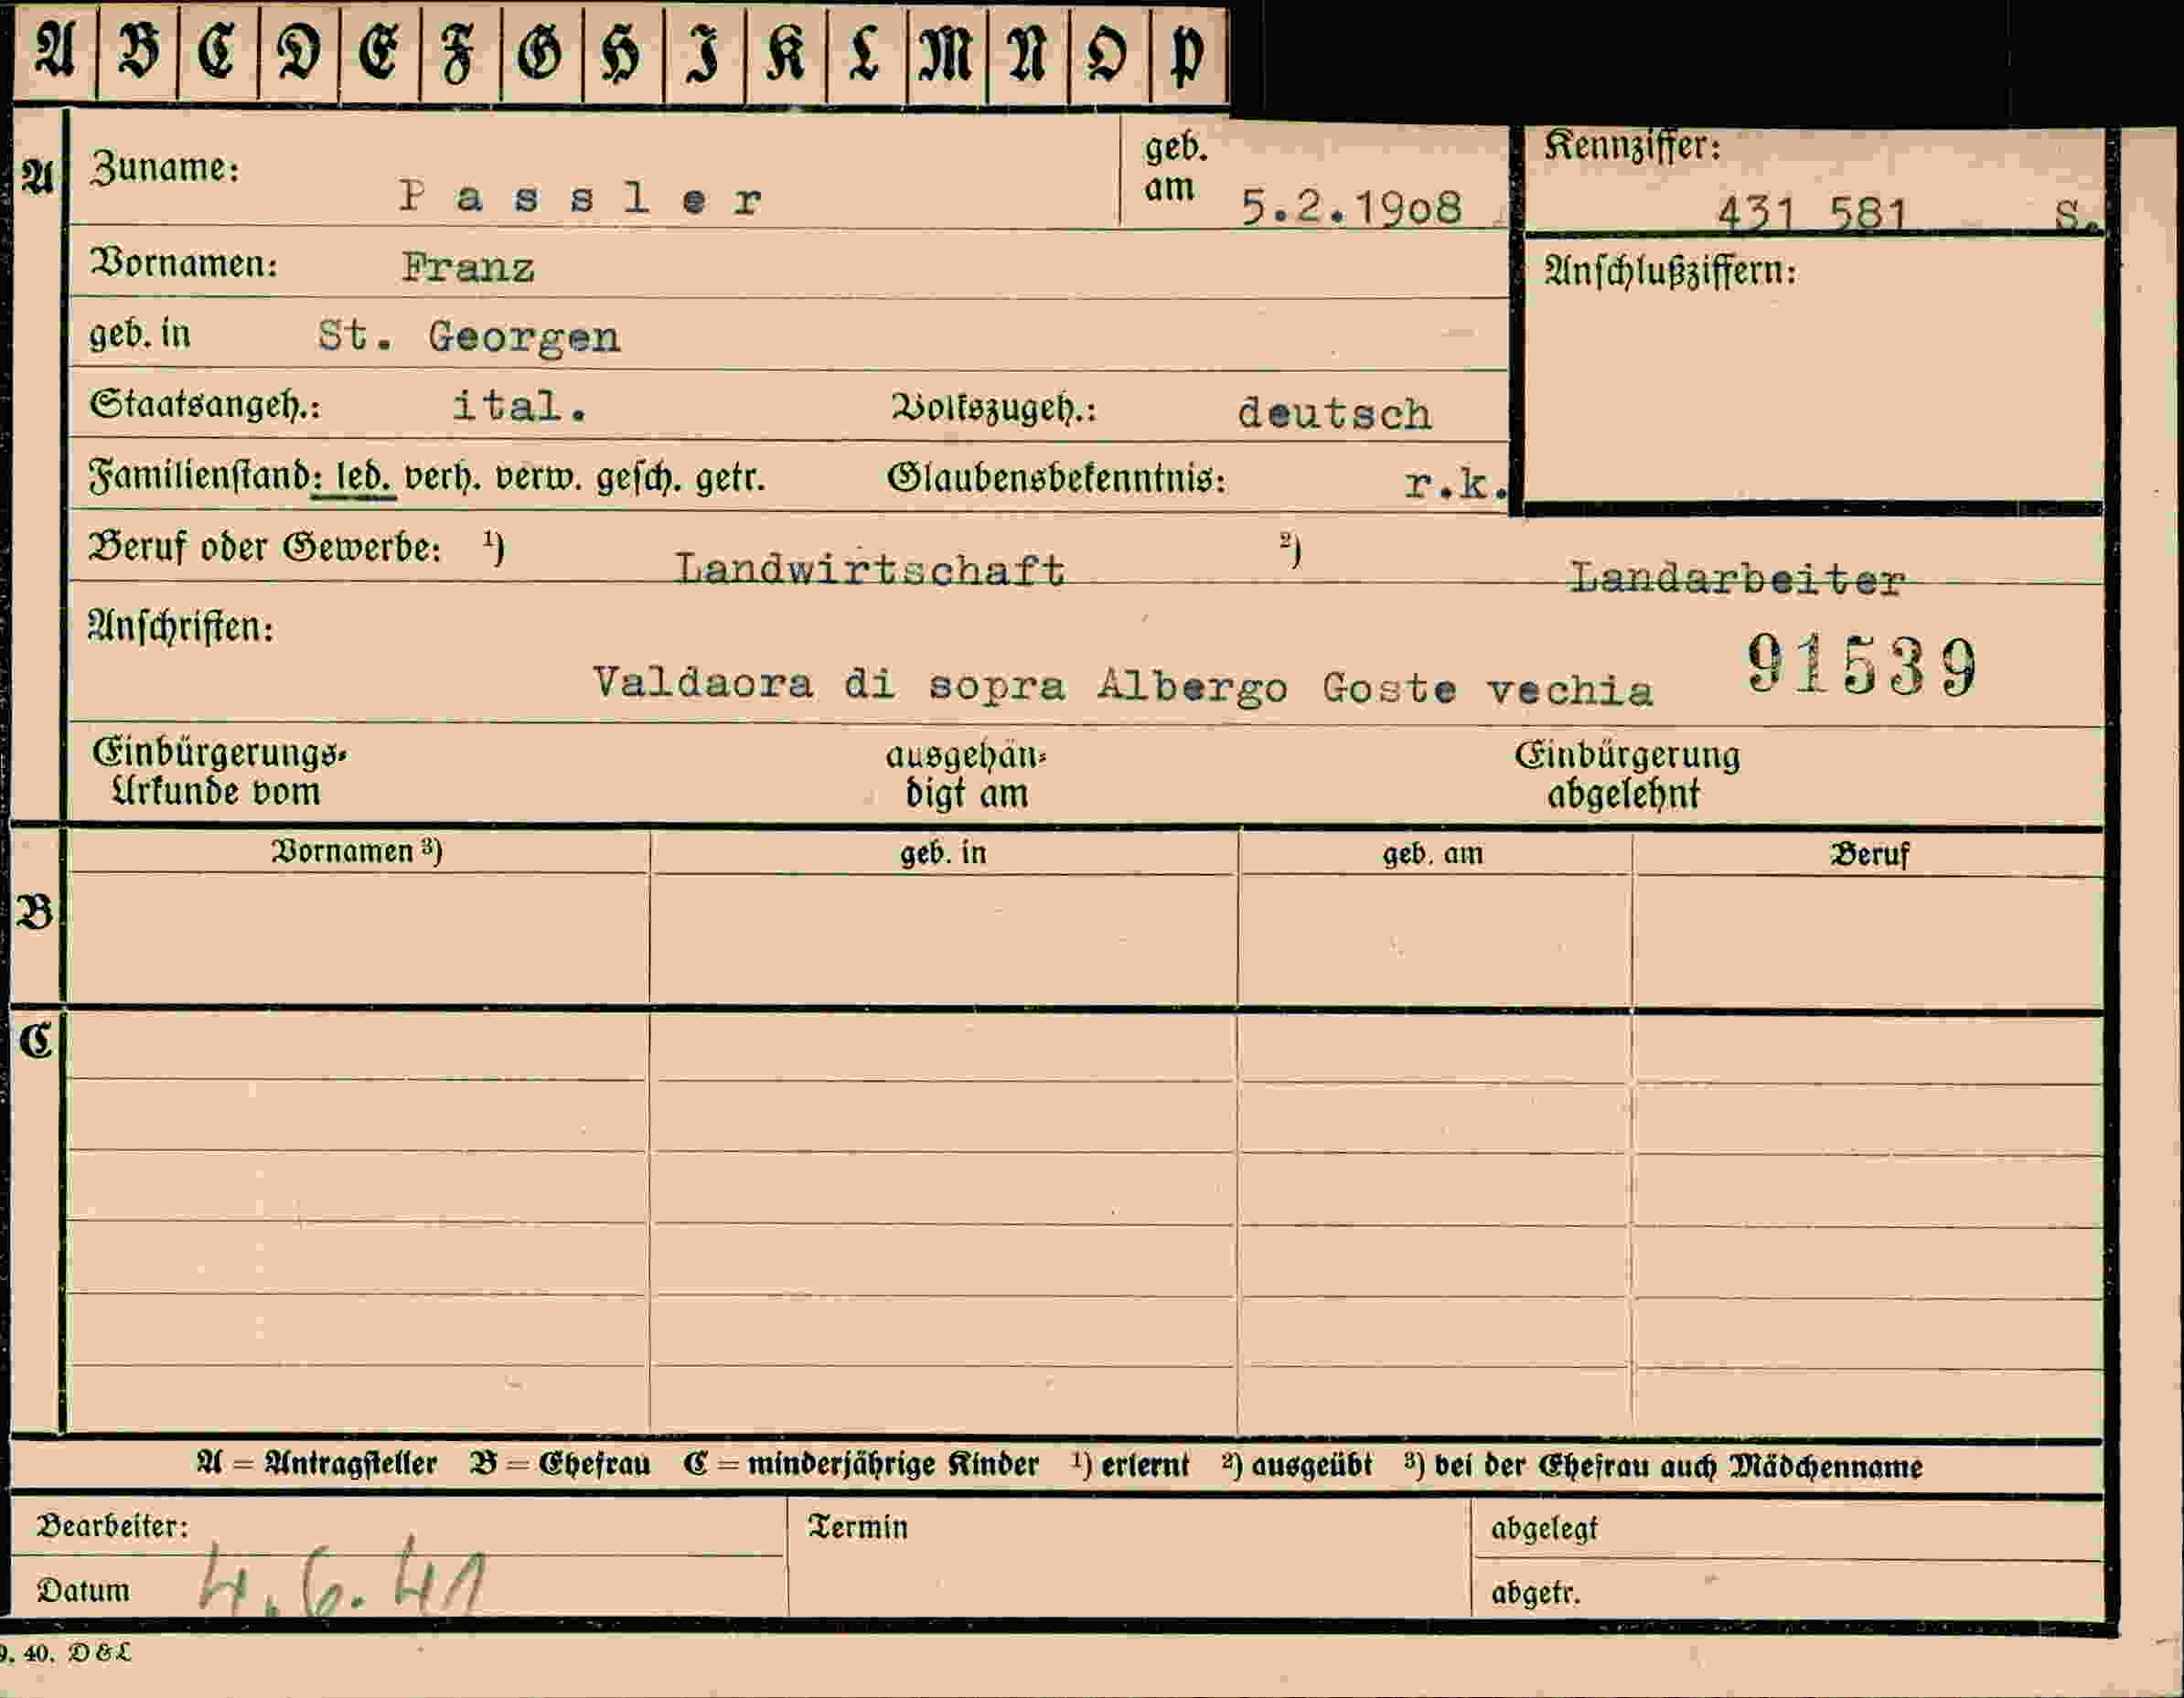 A B C D E F G H I K L M N O P
A Zuname: Passler geb. am 5.2.1908 Kennziffer: 431 581 S.
Vornamen: Franz Anschlußziffern:
geb. in St. Georgen
Staatsangeh.: ital. Volkszugeh.: deutsch
Familienstand: led. verh. verw. gesch. getr. Glaubensbekenntnis: r.k.
Beruf oder Gewerbe: ¹) Landwirtschaft ²) Landarbeiter
Anschriften:
Valdaora di sopra Albergo Goste vechia 91539
Einbürgerungs-Urkunde vom ausgehändigt am Einbürgerung abgelehnt
Vornamen ³) geb. in geb. am Beruf
B
C
A = Antragsteller B = Ehefrau C = minderjährige Kinder ¹) erlernt ²) ausgeübt ³) bei der Ehefrau auch Mädchenname
Bearbeiter: Termin abgelegt
Datum 4.6.41 abgetr.
9. 40. D & L